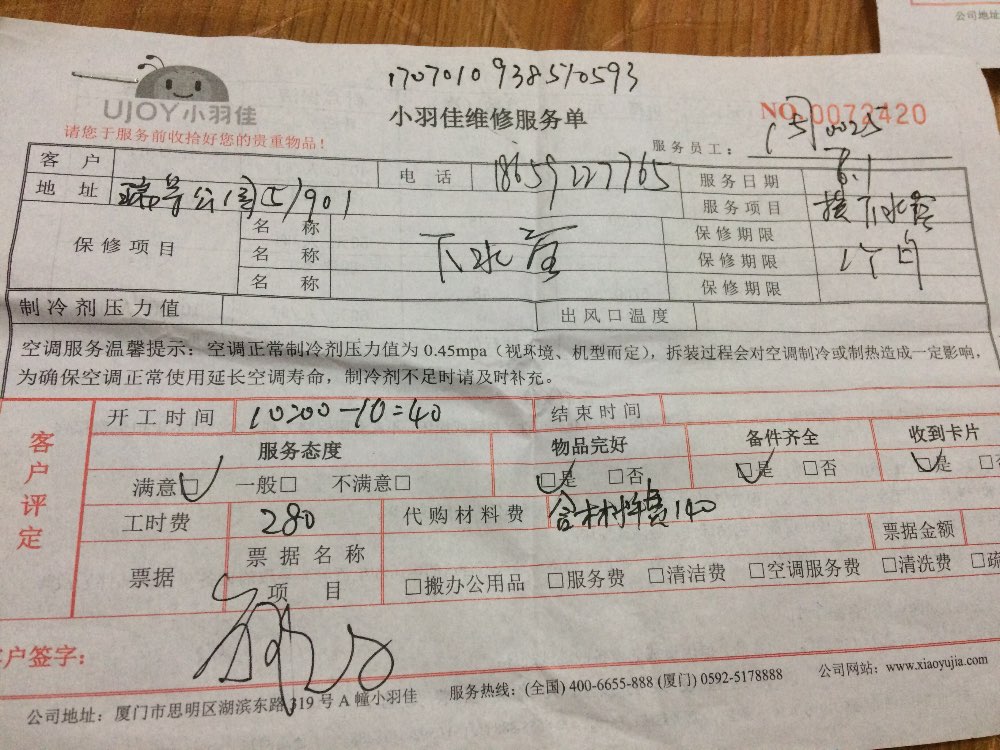 公司地址
1707010938510593
UJOY小羽佳
小羽佳维修服务单
NO.0072420
请您于服务前收拾好您的贵重物品！
服务员工：
客户 电话 18659227765 服务日期 8.1
地址 901 服务项目 换下水管
保修项目 名称 下水管 保修期限
名称 保修期限 1个月
名称 保修期限
制冷剂压力值 出风口温度
空调服务温馨提示：空调正常制冷剂压力值为 0.45mpa（视环境、机型而定），拆装过程会对空调制冷或制热造成一定影响，
为确保空调正常使用延长空调寿命，制冷剂不足时请及时补充。
客户评定
开工时间 10:00-10:40 结束时间
服务态度 物品完好 备件齐全 收到卡片
满意□ 一般□ 不满意□ □是 □否 □是 □否 □是 □否
工时费 280 代购材料费 含材料费140
票据 票据名称 票据金额
项目 □搬办公用品 □服务费 □清洁费 □空调服务费 □清洗费 □疏
客户签字：
公司地址：厦门市思明区湖滨东路 319 号 A 幢小羽佳 服务热线：(全国) 400-6655-888 (厦门) 0592-5178888 公司网站：www.xiaoyujia.com